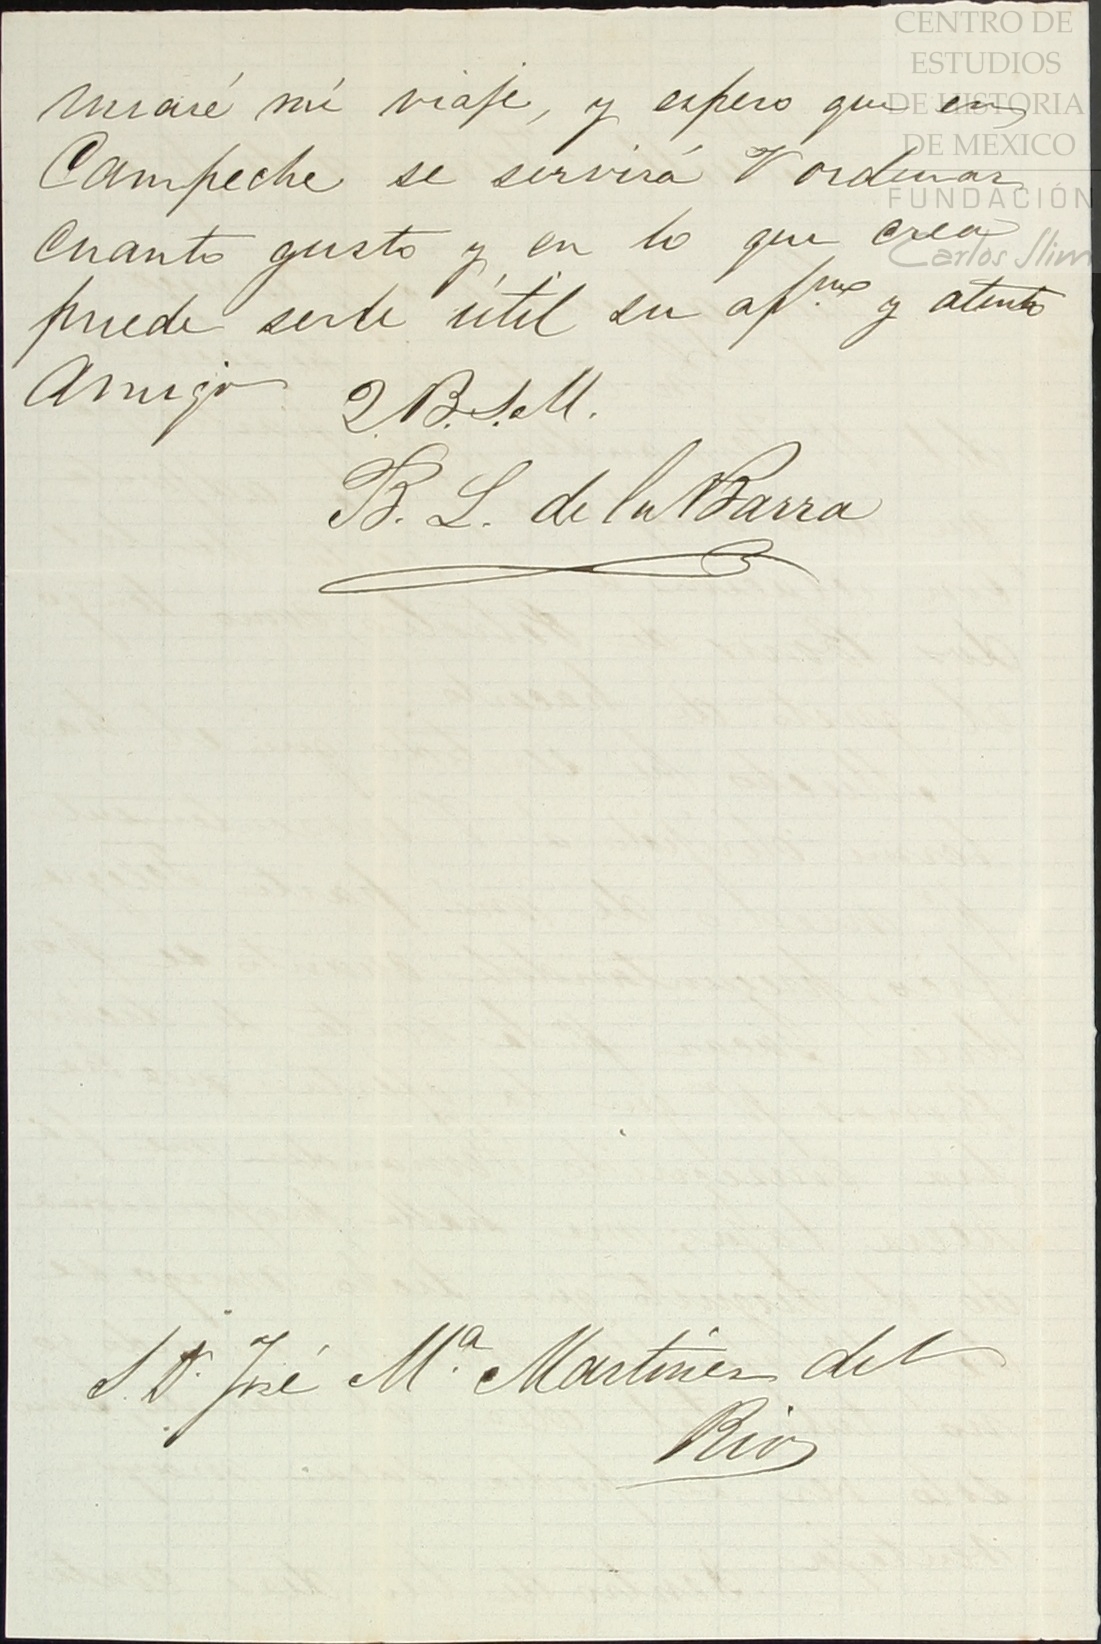 CENTRO DE
ESTUDIOS
DE HISTORIA
DE MÉXICO
FUNDACIÓN
Carlos Slim
nuaré mi viaje, y espero que en
Campeche se servirá V ordenar
cuanto guste y en lo que crea
puede serle útil su afmo y atento
Amigo
Q.B.S.M.
B. L. de la Barra
S. D. José Ma. Martinez del
Rio